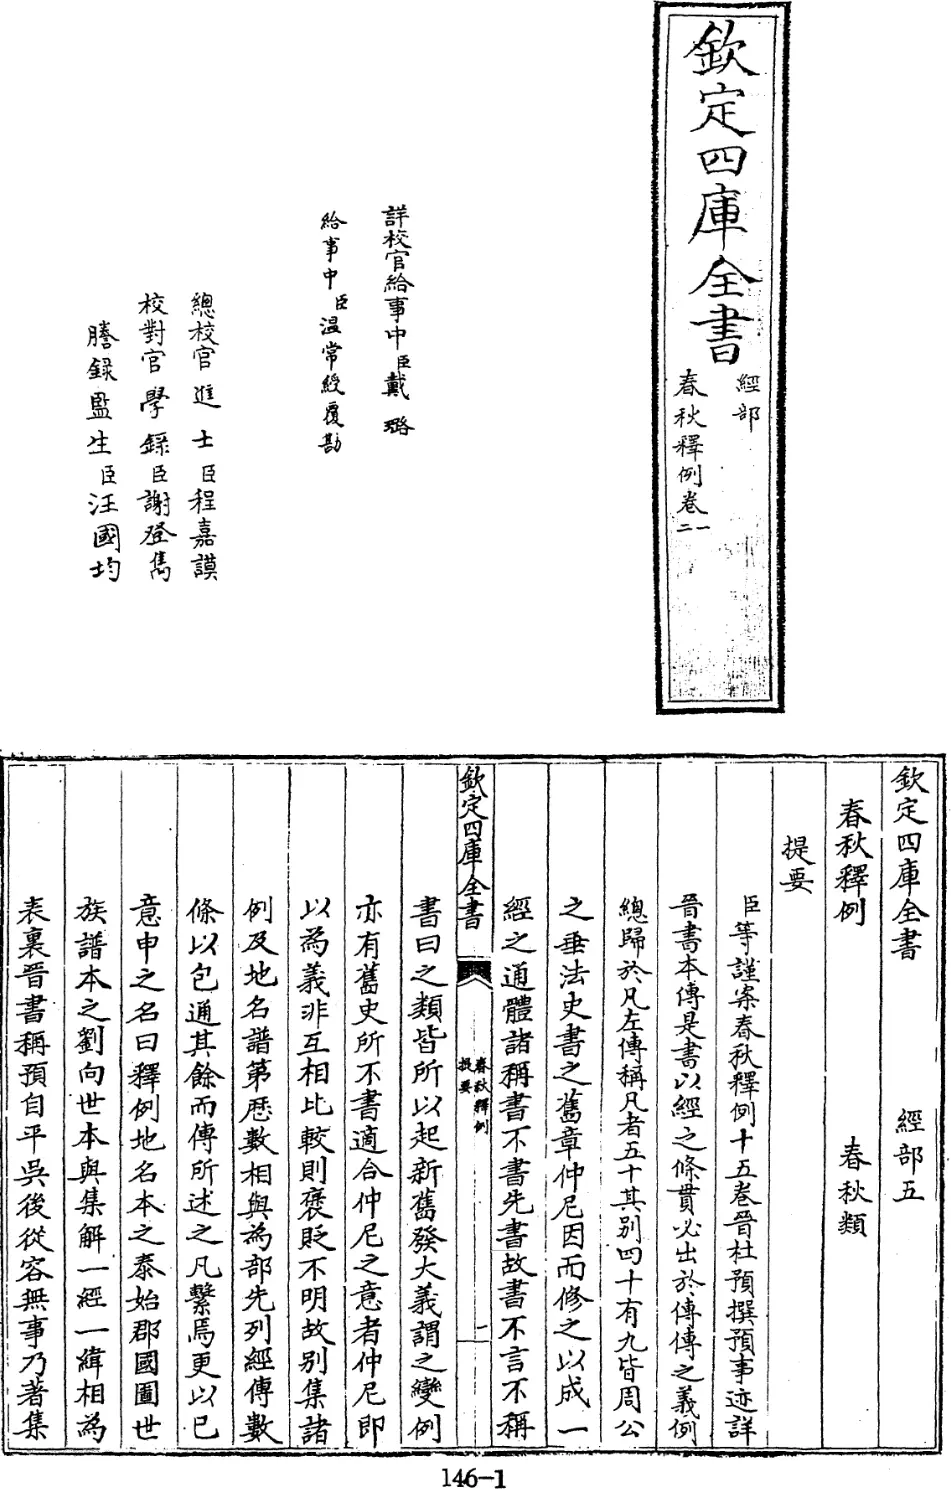 欽定四庫全書
經部
春秋釋例卷一二
詳校官給事中臣戴璐
給事中臣温常綬覆勘
總校官進士臣程嘉謨
校對官學録臣謝登雋
謄錄監生臣汪國均
欽定四庫全書 經部五
春秋釋例 春秋類
提要
臣等謹案春秋釋例十五卷晉杜預撰預事迹詳
晉書本傳是書以經之條貫必出於傳傳之義例
總歸於凡左傳稱凡者五十其别四十有九皆周公
之垂法史書之舊章仲尼因而修之以成一
經之通體諸稱書不書先書故書不言不稱
欽定四庫全書
春秋釋例
提要
一
書曰之類皆所以起新舊發大義謂之變例
亦有舊史所不書適合仲尼之意者仲尼即
以為義非互相比較則褒貶不明故别集諸
例及地名譜第厯數相與為部先列經傳數
條以包通其餘而傳所述之凡繫焉更以已
意申之名曰釋例地名本之泰始郡國圖世
族譜本之劉向世本與集解一經一緯相為
表裏晉書稱預自平吳後從容無事乃著集
146-1